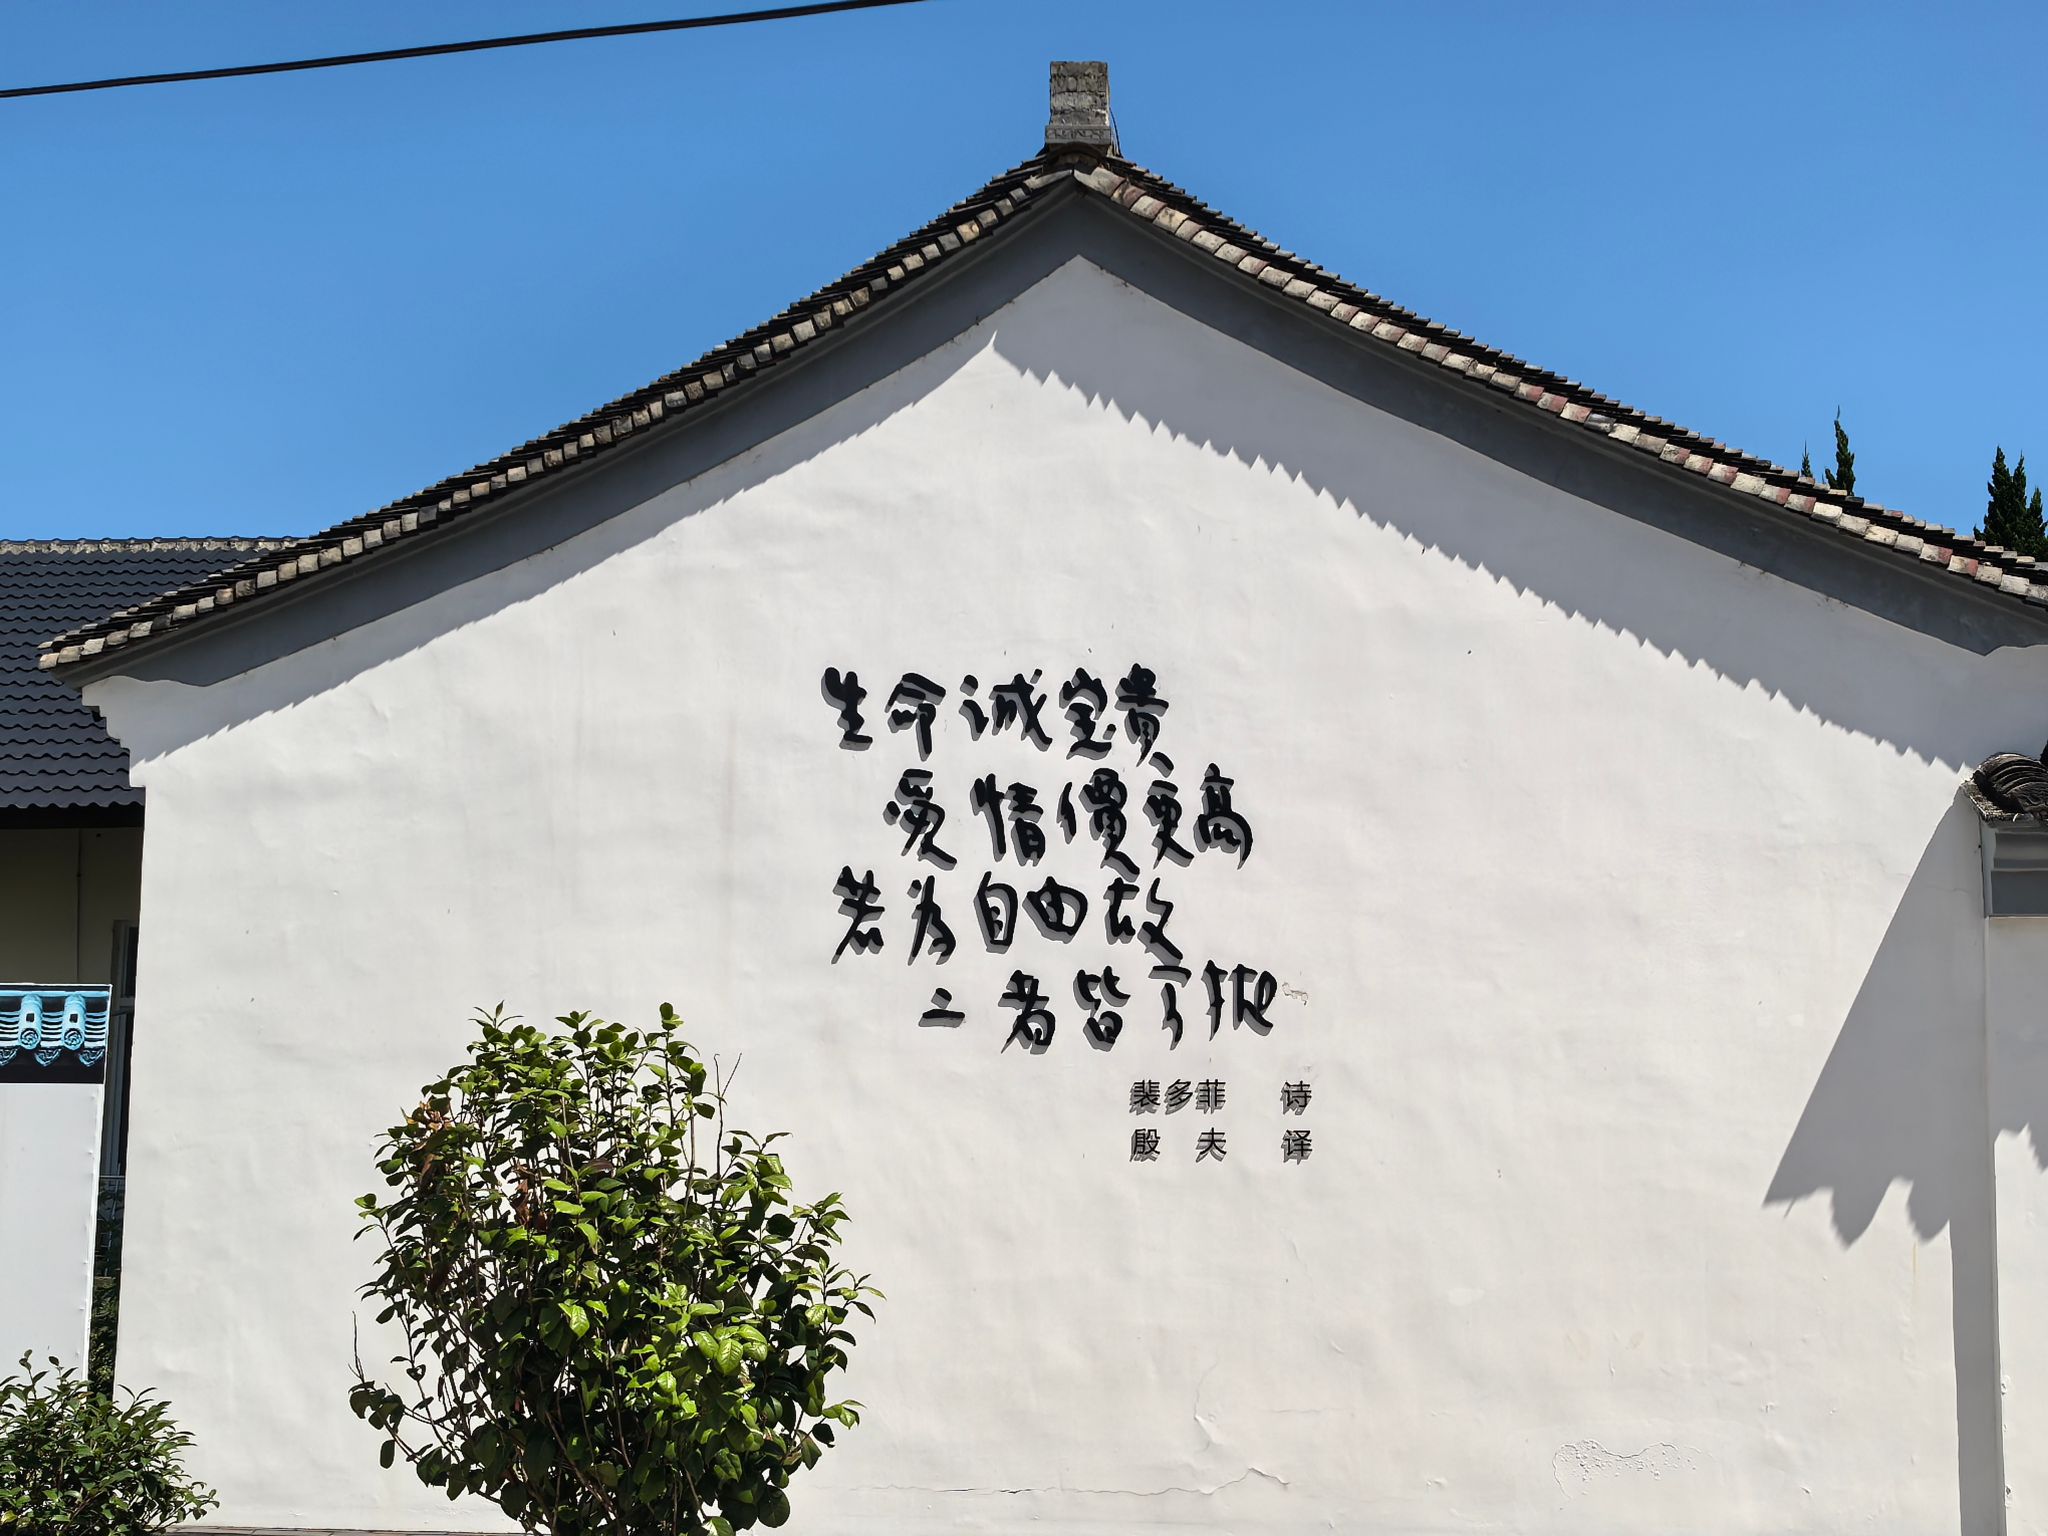 生命诚宝贵
爱情價更高
若为自由故
二者皆可抛
裴多菲 诗
殷夫 译